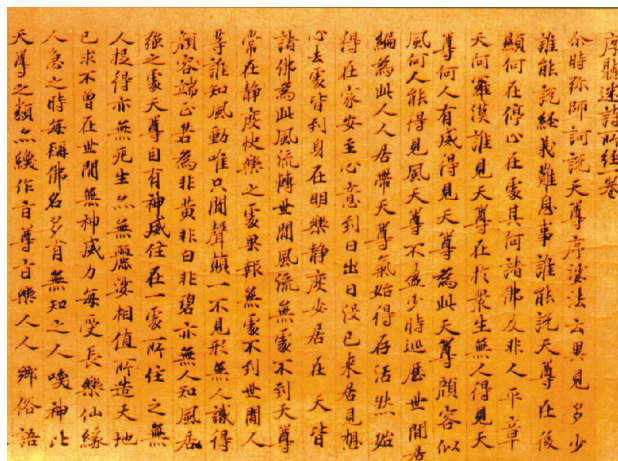 序聽迷詩所經一卷
尒時弥師訶說天尊序娑法云異見多少
誰能說經義難息事誰能說天尊在後
顯何在停心在處其何諸佛及非人平章
天阿羅漢誰見天尊在於衆生無人得見天
尊何人有威得見天尊為此天尊顏容似
風何人能得見風天尊不盈少時巡歷世間居
編為此人人居帶天尊氣始得存活然始
得在家安至心意到日出日没已來居見想
心去處皆到身在明樂静度安居在天皆
諸佛為此風流轉世間風流無處不到天尊
常在静度快樂之處果報無處不到世間人
等誰知風動唯只聞聲顛一不見形無人識得
顏容端正若為非黄非白非碧亦無人知風居
強之處天尊自有神威住在一處所住之無
人捉得亦無死生亦無麗娑相值所造天地
已求不曾在世間無神威力每受長樂仙緣
人急之時每稱佛名多有無知之人喚神比
天尊之類亦緩作旨尊旨樂人人鄉俗語